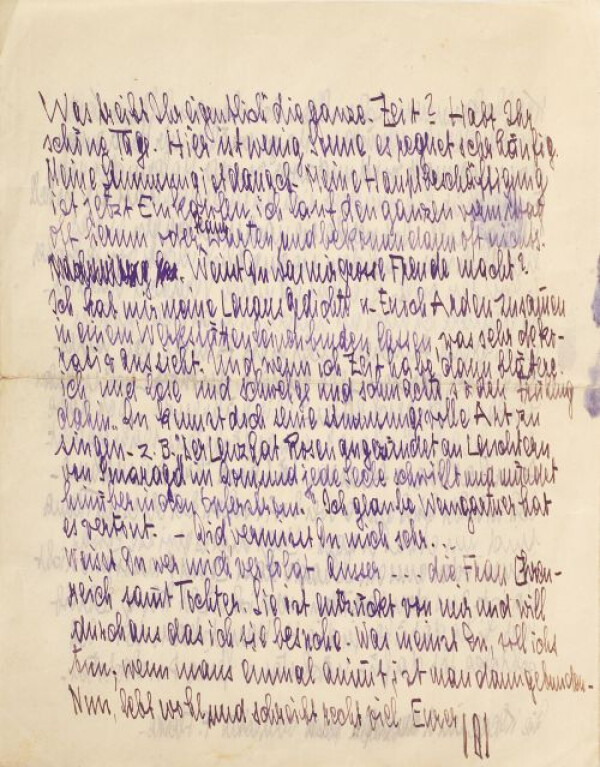 Was treibt Ihr eigentlich die ganze Zeit? Habt Ihr
schöne Tage. Hier ist wenig Sonne es regnet sehr häufig.
Meine Stimmung ist danach. Meine Hauptbeschäftigung
ist jetzt Einkaufen, ich lauf den ganzen vormittag
oft herum oder warten und bekomme dann oft nichts.
Weisst Du was mir grosse Freude macht?
Ich hab mir meine Lenaus Gedichte u. Enoch Arden zusammen
in einem binden lassen, was sehr deko-
rativ aussieht. Und wenn ich Zeit habe, dann blättere
ich und lese und schwelge und schmachte so den Frühling
dahin. Du kennst doch seine stimmungsvolle Art zu
singen - z. B. "Der Lenz hat Rosen angezündet an Leuchtern
von Smaragd im Dom und jede Seele schwillt und mündet
hinüber in den Opferstrom." Ich glaube Weingartner hat
es vertont. - Bid vermisst Du mich sehr...
Weisst Du wer mich verfolgt ausser .... die Frau Ehren-
reich samt Tochter. Sie ist entzückt von mir und will
durchaus das ich sie besuche. Was meinst Du, soll ichs
tun, wenn mans einmal annimmt ist man dann gebunden.
Nun, lebt wohl und schreibt recht viel Eurer